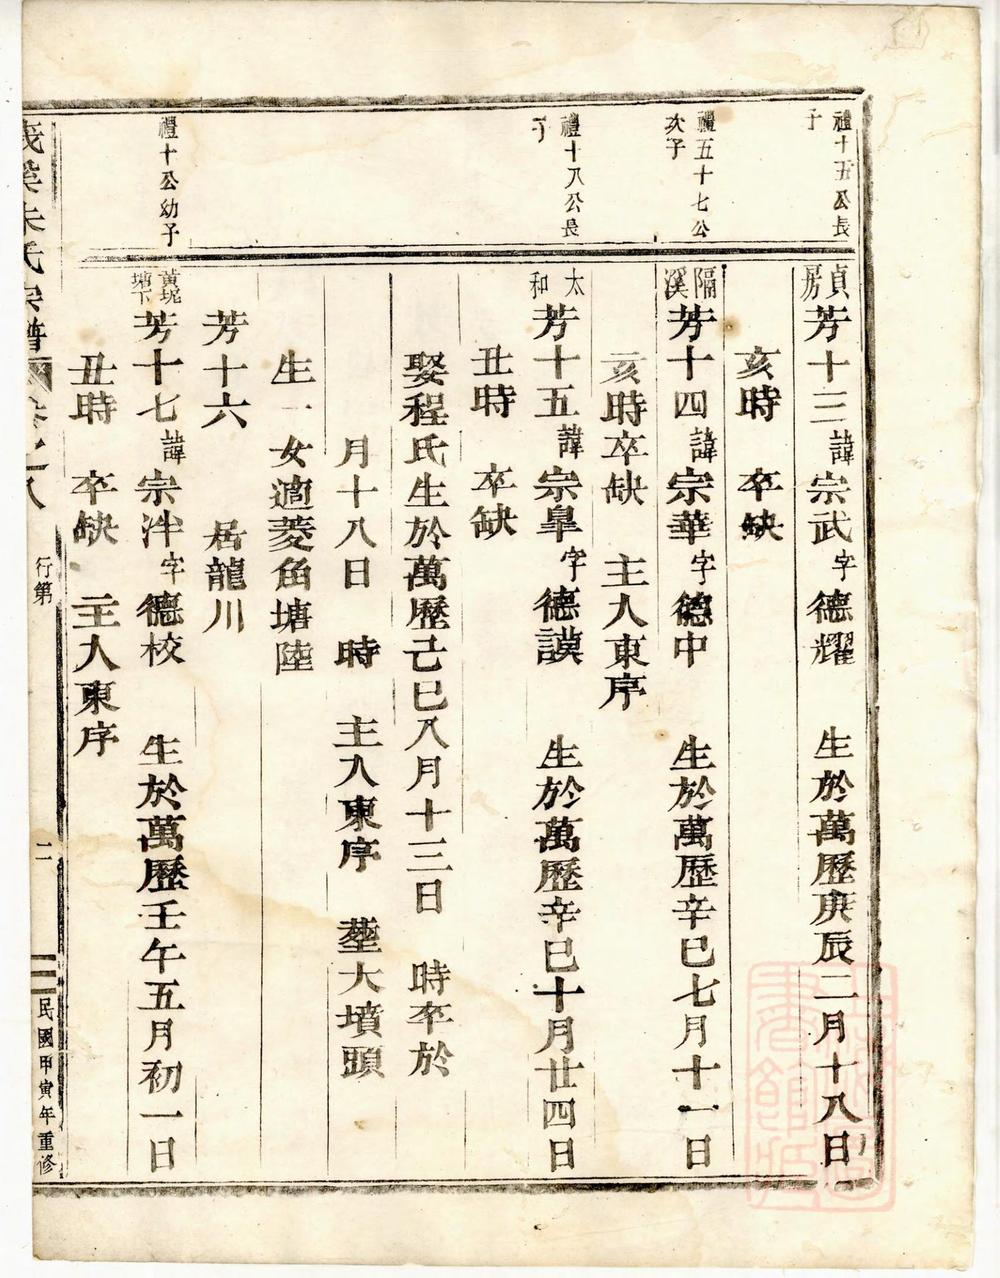 禮十五公長
子
貞
房
芳十三諱宗武字德耀 生於萬曆庚辰二月十八日
亥時 卒缺
禮五十七公
次子
隔
溪
芳十四諱宗華字德中 生於萬歷辛巳七月十一日
亥時卒缺 主入東序
禮十八公長
子
太
和
芳十五諱宗臯字德謨 生於萬歷辛巳十月廿四日
丑時 卒缺
娶程氏生於萬歷己巳八月十三日 時卒於
月十八日 時 主入東序 塟大墳頭
生一女適菱角塘陸
芳十六 居龍川
禮十公幼子
黃坭
塘下
芳十七諱宗泮字德校 生於萬歷壬午五月初一日
丑時 卒缺 主入東序
溪朱氏宗譜 卷之八 行第 二 民國甲寅年重修